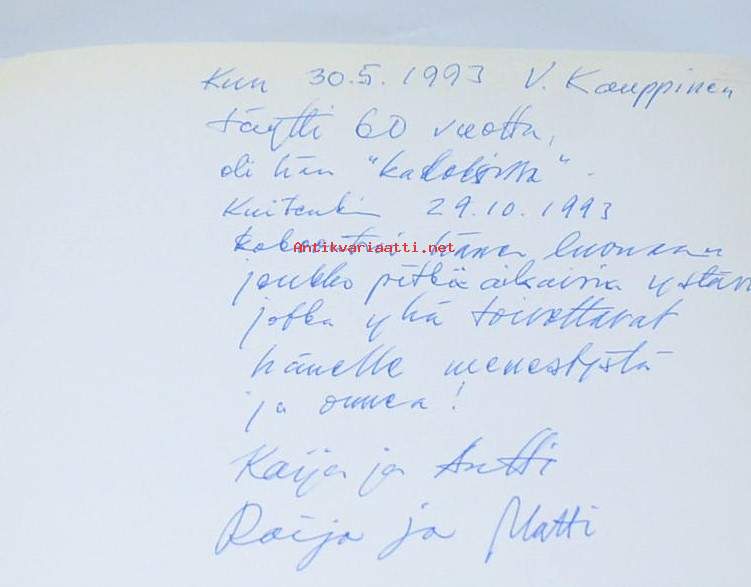 Kun 30.5.1993 V. Kauppinen
täytti 60 vuotta,
oli hän "kadoksissa".
Kuitenkin 29.10.1993
Antikvariaatti.net
hänen luonaan
joukko pitkäaikaisia ystäviä
jotka yhä toivottavat
hänelle menestystä
ja onnea!
Kaija ja Antti
Raija ja Matti